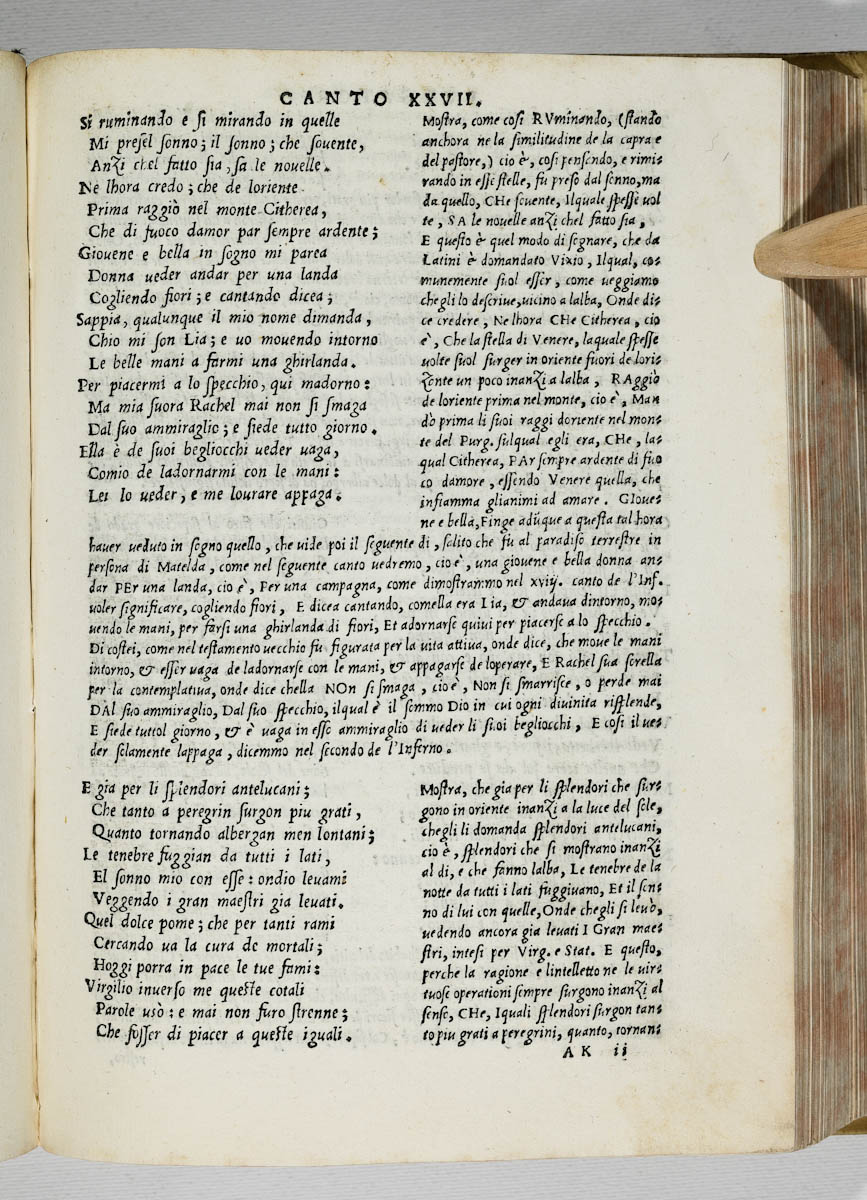 CANTO XXVII.
Si ruminando e si mirando in quelle
Mi presel sonno; il sonno; che souente,
Anzi chel fatto sia, sa le nouelle.
Ne lhora credo; che de loriente
Prima raggiò nel monte Citherea,
Che di fuoco damor par sempre ardente;
Giouene e bella in sogno mi parea
Donna ueder andar per una landa
Cogliendo fiori; e cantando dicea;
Sappia, qualunque il mio nome dimanda,
Chio mi son Lia; e uo mouendo intorno
Le belle mani a farmi una ghirlanda.
Per piacermi a lo specchio, qui madorno:
Ma mia suora Rachel mai non si smaga
Dal suo ammiraglio; e siede tutto giorno.
Ella è de suoi begliocchi ueder uaga,
Comio de ladornarmi con le mani:
Lei lo ueder; e me lourare appaga.
Mostra, come cosi RVminando, (stando
anchora ne la similitudine de la capra e
del pastore,) cio è, cosi pensando, e rimi⸗
rando in esse stelle, fu preso dal sonno, ma
da quello, CHe souente, Ilquale spesse uol
te, SA le nouelle anzi chel fatto sia,
E questo è quel modo di sognare, che da
Latini è domandato Visio, Ilqual, co⸗
munemente suol esser, come ueggiamo
chegli lo descriue, uicino a lalba, Onde di⸗
ce credere, Ne lhora CHe Citherea, cio
è, Che la stella di Venere, laquale spesse
uolte suol surger in oriente fuori de lori⸗
zonte un poco inanzi a lalba, RAggiò
de loriente prima nel monte, cio è, Man
dò prima li suoi raggi doriente nel mon⸗
te del Purg. sulqual egli era, CHe, la⸗
qual Citherea, PAr sempre ardente di fuo
co damore, essendo Venere quella, che
infiamma glianimi ad amare. GIoue⸗
ne e bella, Finge adũque a questa tal hora
hauer ueduto in sogno quello, che uide poi il seguente di, salito che fu al paradiso terrestre in
persona di Matelda, come nel seguente canto uedremo, cio è, una giouene e bella donna an⸗
dar PEr una landa, cio è, Per una campagna, come dimostrammo nel xviij. canto de l'Inf.
uoler significare, cogliendo fiori, E dicea cantando, comella era Lia, & andaua dintorno, mo⸗
uendo le mani, per farsi una ghirlanda di fiori, Et adornarse quiui per piacerse a lo specchio.
Di costei, come nel testamento uecchio fu figurata per la uita attiua, onde dice, che moue le mani
intorno, & esser uaga de ladornarse con le mani, & appagarse de loperare, E Rachel sua sorella
per la contemplatiua, onde dice chella NOn si smaga, cio è, Non si smarrisce, o perde mai
DAl suo ammiraglio, Dal suo specchio, ilqual è il sommo Dio in cui ogni diuinita risplende,
E siede tuttol giorno, & è uaga in esso ammiraglio di ueder li suoi begliocchi, E cosi il ue⸗
der solamente lappaga, dicemmo nel secondo de l'Inferno.
E gia per li splendori antelucani;
Che tanto a peregrin surgon piu grati,
Quanto tornando albergan men lontani;
Le tenebre fuggian da tutti i lati,
El sonno mio con esse: ondio leuami
Veggendo i gran maestri gia leuati.
Quel dolce pome; che per tanti rami
Cercando ua la cura de mortali;
Hoggi porra in pace le tue fami:
Virgilio inuerso me queste cotali
Parole usò: e mai non furo strenne;
Che fosser di piacer a queste iguali.
Mostra, che gia per li splendori che sur⸗
gono in oriente inanzi a la luce del sole,
chegli li domanda splendori antelucani,
cio è, splendori che si mostrano inanzi
al di, e che fanno lalba, Le tenebre de la
notte da tutti i lati fuggiuano, Et il son⸗
no di lui con quelle, Onde chegli si leuò,
uedendo ancora gia leuati I Gran mae⸗
stri, intesi per Virg. e Stat. E questo,
perche la ragione e lintelletto ne le uir⸗
tuose operationi sempre surgono inanzi al
senso, CHe, Iquali splendori surgon tan⸗
to piu grati a peregrini, quanto, tornan⸗
AK ii